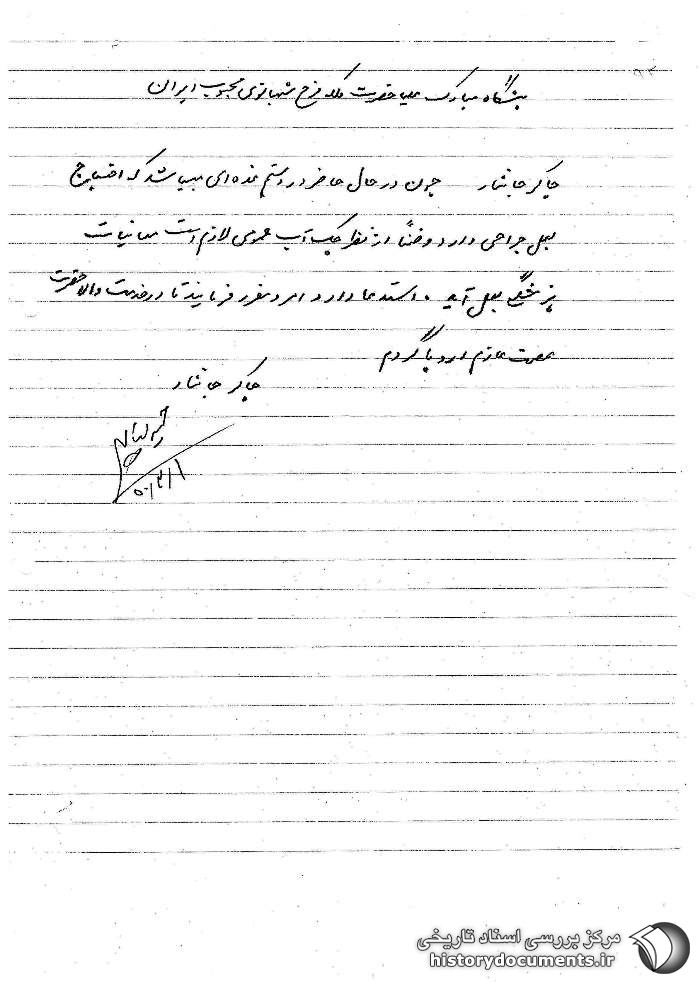 پیشگاه مبارک علیاحضرت ملکه فرح شهبانوی محبوب ایران
چاکر جانثار چون در حال حاضر در دستم غده‌ای میباشد که احتیاج
بعمل جراحی دارد و ضمناً از نظر چک آپ عمومی لازم است معاینات
پزشکی بعمل آید. استدعا دارد امر و مقرر فرمایند تا در خدمت والاحضرت
عازم اروپا گردم
چاکر جانثار
۵۰/۳/۱
مرکز بررسی اسناد تاریخی
historydocuments.ir